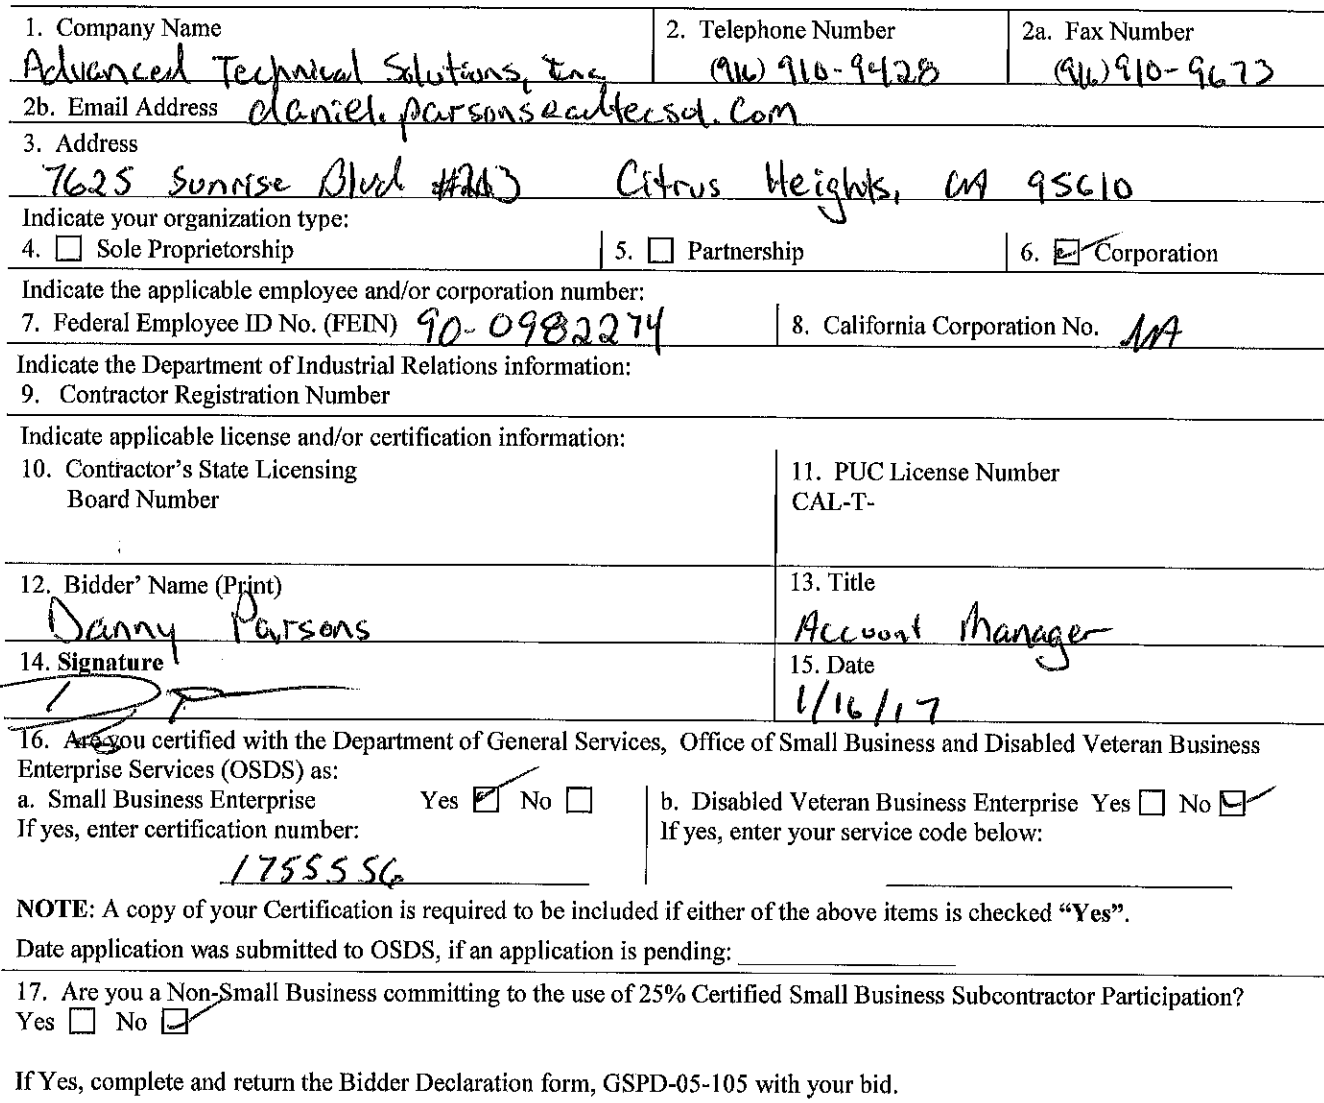 1. Company Name
2. Telephone Number
2a. Fax Number
Advanced Technical Solutions, Inc
(916) 910-9428
(916) 910-9673
2b. Email Address
3. Address
7625 Sunrise Blvd Citrus Heights, CA 95610
Indicate your organization type:
4. ☐ Sole Proprietorship
5. ☐ Partnership
6. ☑ Corporation
Indicate the applicable employee and/or corporation number:
7. Federal Employee ID No. (FEIN) 90-0982274
8. California Corporation No. NA
Indicate the Department of Industrial Relations information:
9. Contractor Registration Number
Indicate applicable license and/or certification information:
10. Contractor's State Licensing
Board Number
11. PUC License Number
CAL-T-
12. Bidder' Name (Print)
Danny Parsons
13. Title
Account Manager
14. Signature
15. Date
1/16/17
16. Are you certified with the Department of General Services, Office of Small Business and Disabled Veteran Business
Enterprise Services (OSDS) as:
a. Small Business Enterprise Yes ☑ No ☐
If yes, enter certification number:
1755556
b. Disabled Veteran Business Enterprise Yes ☐ No ☑
If yes, enter your service code below:
NOTE: A copy of your Certification is required to be included if either of the above items is checked “Yes”.
Date application was submitted to OSDS, if an application is pending:
17. Are you a Non-Small Business committing to the use of 25% Certified Small Business Subcontractor Participation?
Yes ☐ No ☑
If Yes, complete and return the Bidder Declaration form, GSPD-05-105 with your bid.